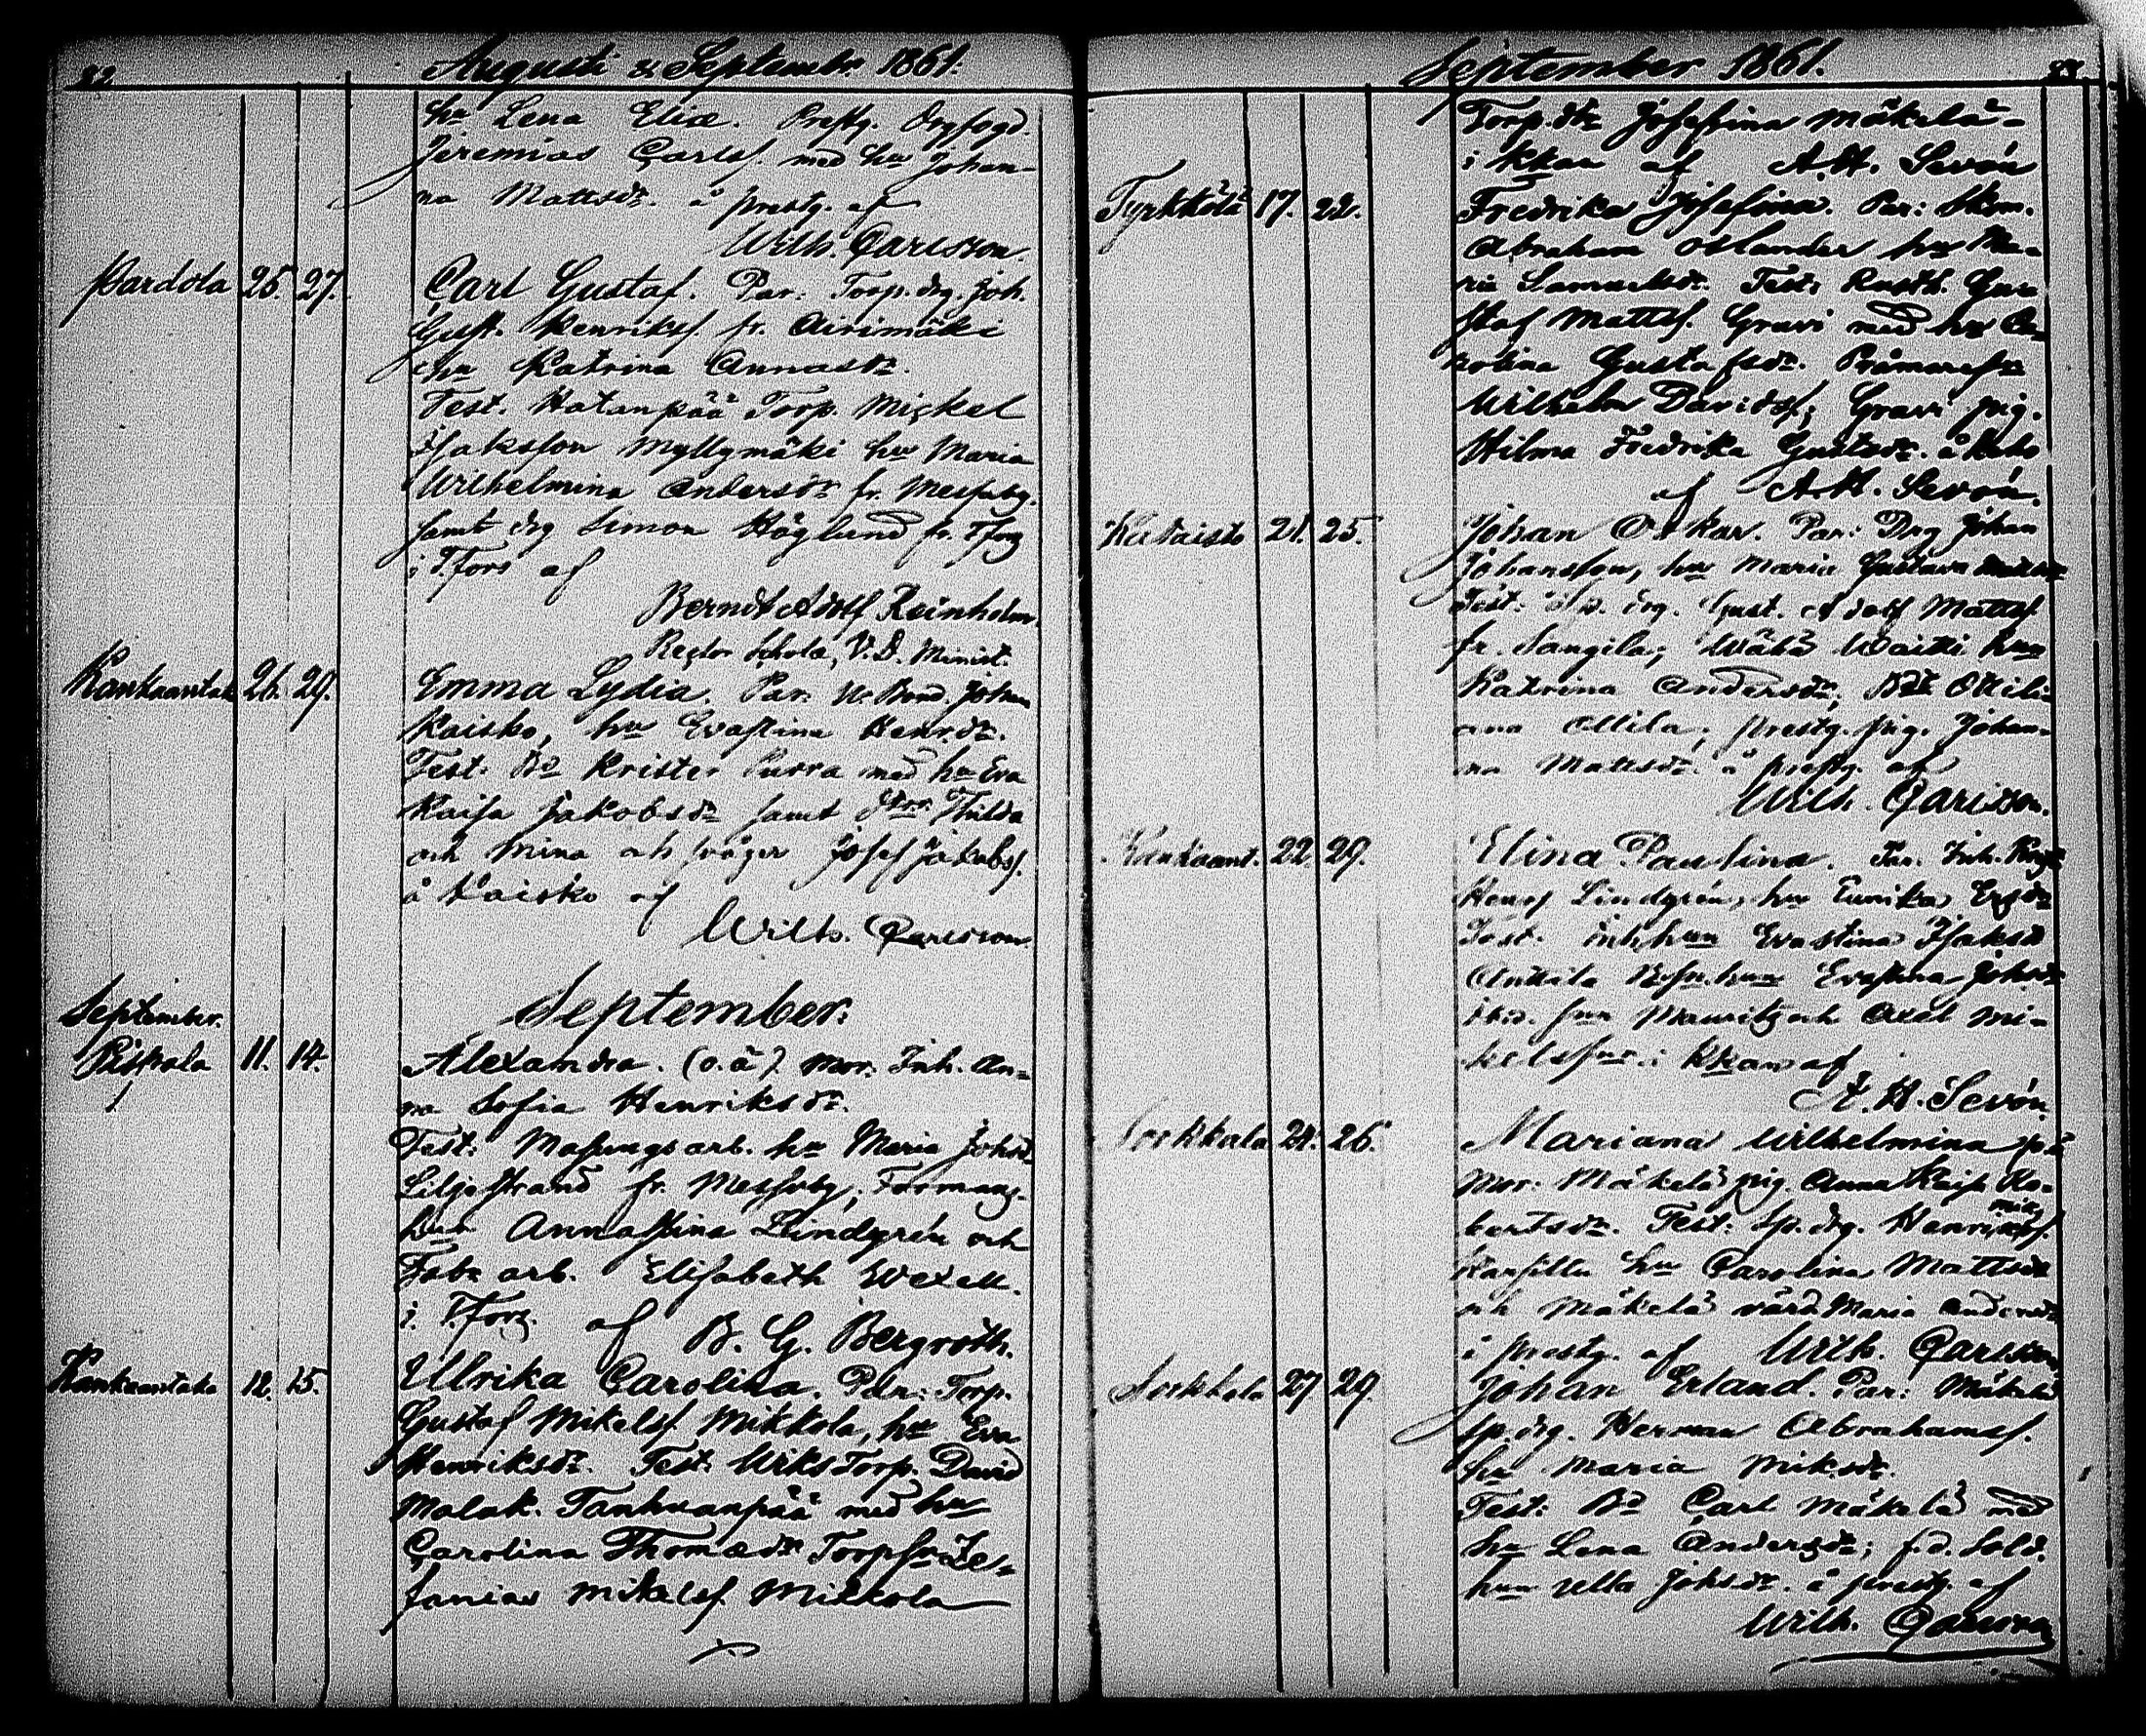 82.
Augusti & Septembr. 1861.
hu Lena Elia. Prestg. Drgfogd.
Jeremias Carlss. med hu Johan-
na Mattsdr. å prestg. af
Wilh. Carlsson.
Pardola 25. 27. Carl Gustaf. Par: Torp. drg. Joh.
Gust. Henrikss. fr. Airimäki
hu Katrina Annasdr.
Test. Hatanpää Torp. Mickel
Isaksson Myllymäki hu Maria
Wilhelmina Andersdr fr. Messuby.
samt drg Simon Höglund fr. Tfors
i Tfors af
Berndt Adolf Reinholm.
Rector Scholæ, V. D. Minist.
Kankaantaka 26. 29. Emma Lydia. Par: Bond. Johan
Kaisko, hu Evastina Henrdr.
Test: Bd Krister Purra med hu Eva
Kaisa Jakobsdr samt Thilda
och Mina och svåger Josef Jakobss.
å Kaisko af
Wilh. Carlsson
September.
September.
Pispala 11. 14. Alexandra. (o.ä). Mor: Inh. An-
na Sofia Henriksdr.
Test: Masungsarb. hu Maria Johsdr
Liljestrand fr. Messuby; Formans-
hun Annastina Lindgrén och
Fabr arb. Elisabeth Wexell.
i Tfors. af B. G. Bergroth.
Kankaantaka 12. 15. Ullrika Carolina. Par: Torp.
Gustaf Mikelss Mikkola, hu Eva
Henriksdr. Test: Wiks Torp. David
Malak. Tanhuanpää med hu
Carolina Thomædr Torpsn Ze-
fanias Mikelss. Mikkola
September 1861.
83
Torp. dr Josefina Mäkelä
i kkan af A. H. Sevón
Tyrkkölä 17. 22. Fredrika Josefina. Par: Skom.
Abraham Oslander hu Ma-
ria Samuelsdr. Test: Rusth. Gus-
staf Mattss. Gravi med hu Ca-
rolina Gustafsdr.
Wilhelm Davidss; Gravi pig.
Hilma Fredrika Gustsdr. å
af A. H. Sevón.
Kataisto 21. 25. Johan Oskar. Par: Drg Johan
Johansson, hu Maria Gustava
Test: Sp. drg. Gust. Adolf Mattss
fr. Sangila; Wähä Waitti hun
Katrina Andersdr, Bdr Ottili-
ana Ollila; prestg. pig. Johan-
na Mattsdr. å prestg. af
Wilh. Carlsson.
Kankaant. 22. 29. Elina Paulina. Par: Inh.
Henr Lindgrén, hu Eunika Ersdr
Test: Inhhun Evastina Isaksd
Anttila hun Evastina Johsdr
ibid. Mauritz och Axel Mi-
kelss i kkan af
A. H. Sevón.
Sorkkala 24. 26. Mariana Wilhelmina
Mor: Mäkelä pig. Anna Kaisa Ro-
bertsdr. Test: Sp. drg. Henrik Mikss.
hu Carolina Mattsdr
och Mäkelä värd Maria Andersdr
i prestg. af Wilh. Carlsson
Sorkkala 27 29. Johan Erland. Par: Mäkelä
sp. drg. Herman Abrahamss.
hu Maria Miksdr.
Test: Bd Carl Mäkelä med
hu Lena Andersdr; f.d. Sold.
hun Ulla Johsdr. å prestg. af
Wilh. Carlsson